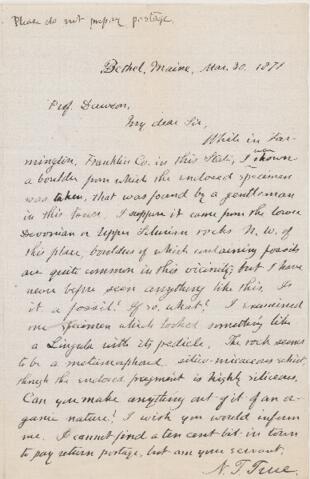 Please do not prepay postage.
Bethel, Maine, Mar. 30, 1871
Prof. Dawson,
My dear Sir,
While in Far-
mington, Franklin Co. in this State, I was shown
a boulder from which the enclosed specimen
was taken, that was found by a gentleman
in this town. I suppose it came from the lower
Devonian or Upper Silurian rocks N.W. of
this place, boulders of which containing fossils
are quite common in this vicinity; but I have
never before seen anything like this. Is
it a fossil? If so, what? I examined
one specimen which looked something like
a Lingula with its pedicle. The rock seems
to be a metamorphosed silico-micaceous schist,
though the enclosed fragment is highly siliceous.
Can you make anything out of it of an or-
ganic nature? I wish you would inform
me. I cannot find a ten cent bit in town
to pay return postage, but am your servant,
N. T. True